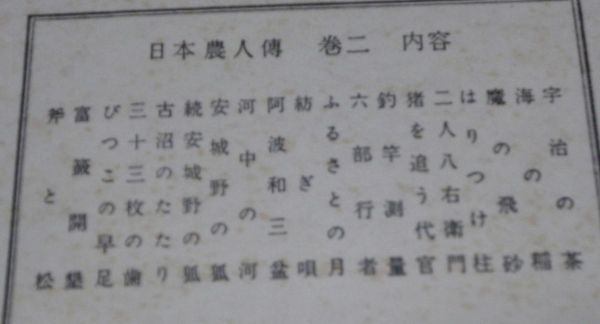 日本農人傳 巻二 内容
宇治の茶
海の稲
魔の飛砂
はりつけ柱
二人八右衛門
猪を追う代官
釣竿測量
六部行者
ふるさとの月
紡ぎ唄
阿波和三盆
河中の河
安城野の狐
続安城野の狐
古沼のたたり
三十三枚の歯
びつこの早足
富籤開墾
斧と松